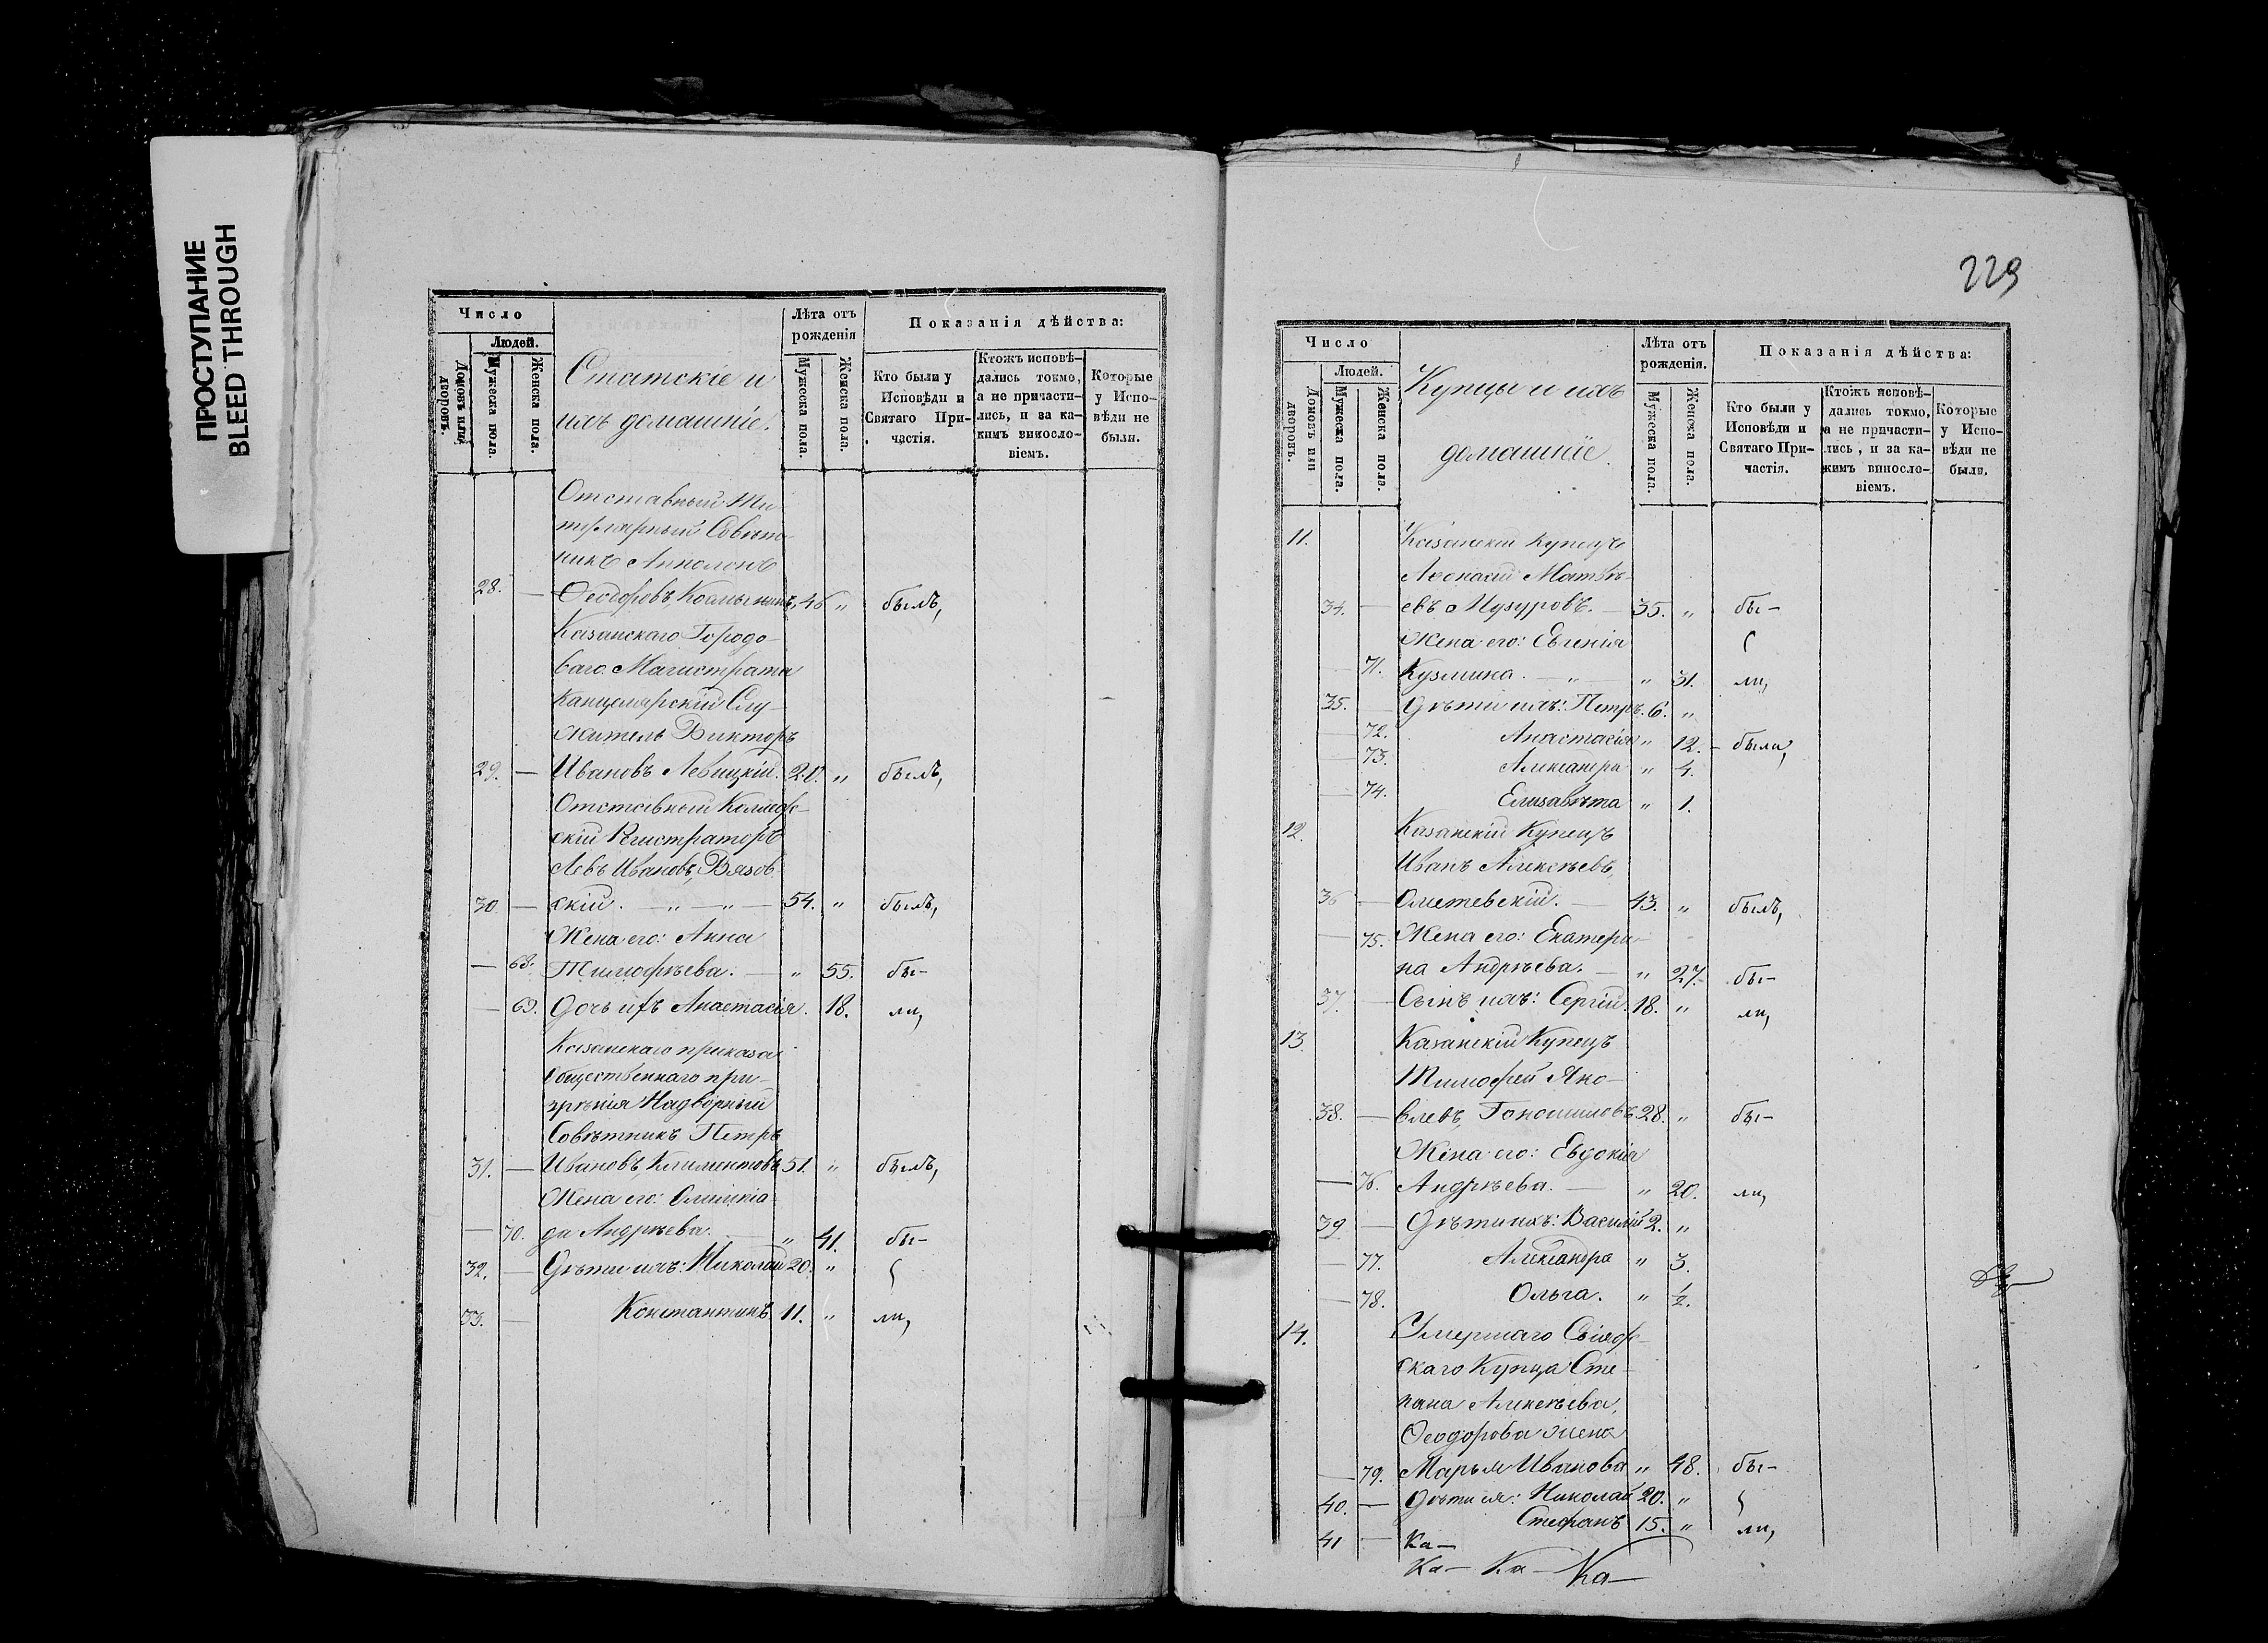 ПРОСТУПАНИЕ
BLEED THROUGH
Число
Людей.
Домовъ или дворовъ.
Мужеска пола.
Женска пола.
Статскіе и
ихъ домашніе.
Лѣта отъ
рожденія
Мужеска пола.
Женска пола.
Показанія дѣйства:
Кто были у
Исповѣди и
Святаго При-
частія.
Ктожъ исповѣ-
дались токмо,
а не причасти-
лись, и за ка-
кимъ виносло-
віемъ.
Которые
у Испо-
вѣди не
были.
Отставный Ти-
тулярный Совѣт-
никъ Апполонъ
28. — Ѳеодоровъ, 46 " былъ,
Казанскаго Городо-
ваго Магистрата
Канцелярскій Слу-
житель Викторъ
29. — Ивановъ Левицкій. 20. " былъ,
Отставный Коллеж-
скій Регистраторъ
Левъ Ивановъ, Вязов
30. — скій. — " — " — 54. " былъ,
Жена его: Анна
— 68. Тимофѣева. — " 55. бы-
— 69. Дочь ихъ Анастасія. 18. ли,
Казанскаго приказа
Общественнаго при-
зрѣнія Надворный
Совѣтникъ Петръ
31. — Ивановъ, Климентовъ 51. " былъ,
Жена его: Олимпіа-
— 70. да Андрѣева. — " 41. бы-
32. — Дѣти ихъ: Николай 20. "
33. — Константинъ 11. " ли,
229
Число
Людей.
Домовъ или дворовъ.
Мужеска пола.
Женска пола.
Купцы и ихъ
домашніе.
Лѣта отъ
рожденія.
Мужеска пола.
Женска пола.
Показанія дѣйства:
Кто были у
Исповѣди и
Святаго При-
частія.
Ктожъ исповѣ-
дались токмо,
а не причасти-
лись, и за ка-
кимъ виносло-
віемъ.
Которые
у Испо-
вѣди не
были.
11. Казанскій Купецъ
Аѳонасій Матвѣ-
34. — евъ Музуровъ. — 35. " бы-
Жена его: Евгенія
— 71. Кузмина. — " — " 31. ли,
35. — Дѣти ихъ: Петръ. 6. "
— 72. Анастасія " 12. — была,
— 73. Александра " 4.
— 74. Елизавѣта " 1.
12. Казанскій Купецъ
Иванъ Алексѣевъ,
36 — Ометевскій. — 43. " былъ,
— 75. Жена его: Екатери-
на Андрѣева. — " 27. бы-
37. — Сынъ ихъ: Сергій. 18. " ли,
13. Казанскій Купецъ
Тимофей Яко-
38. — влевъ, Гоношиловъ 28. " бы-
Жена его: Евдокія
— 76. Андрѣева. — " 20. ли,
39. — Дѣти ихъ: Василій 2. "
— 77. Александра " 3.
— 78. Ольга. " 1/2.
14. Умершаго Свіяж-
скаго Купца Сте-
пана Алексѣева,
Ѳеодорова жена
— 79. Марья Иванова " 48. бы-
40. — Дѣти ея: Николай 20. "
41 — Стефанъ 15. " ли,
Ка-
Ка- Ка- Ка-